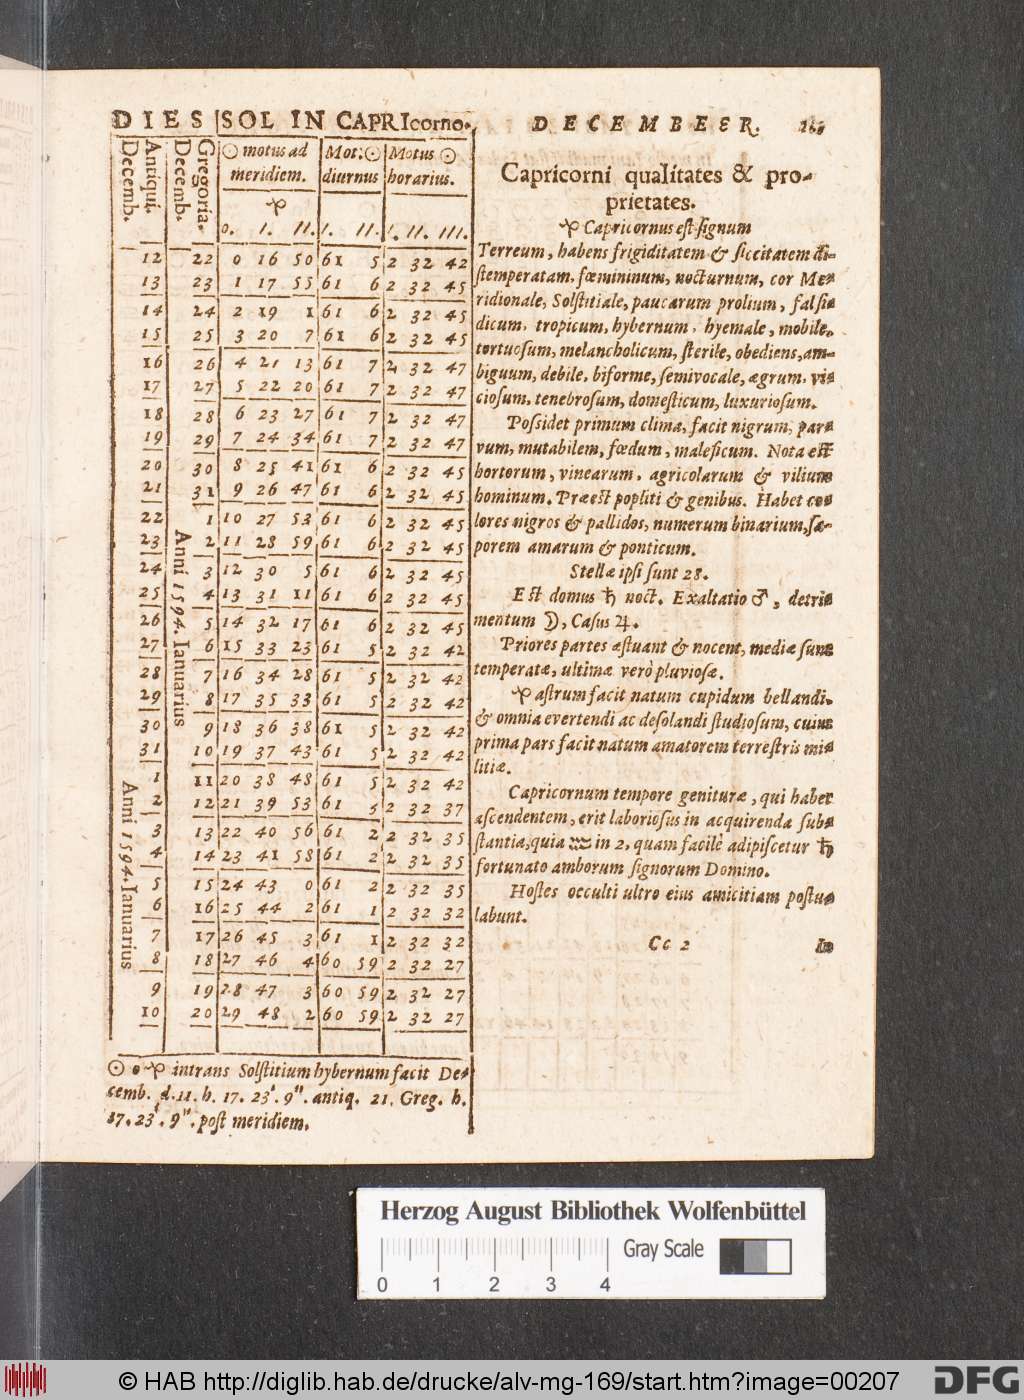 DIES SOL IN CAPRIcorno.
Antiqui. Decemb.
Gregoria. Decemb.
☉ motus ad meridiem.
Mot: ☉ diurnus
Motus ☉ horarius.
♑
0. I. II. I. II. I. II. III.
12 22 0 16 50 61 5 2 32 42
13 23 1 17 55 61 6 2 32 45
14 24 2 19 1 61 6 2 32 45
15 25 3 20 7 61 6 2 32 45
16 26 4 21 13 61 7 2 32 47
17 27 5 22 20 61 7 2 32 47
18 28 6 23 27 61 7 2 32 47
19 29 7 24 34 61 7 2 32 47
20 30 8 25 41 61 6 2 32 45
21 31 9 26 47 61 6 2 32 45
Anni 1594. Ianuarius
22 1 10 27 53 61 6 2 32 45
23 2 11 28 59 61 6 2 32 45
24 3 12 30 5 61 6 2 32 45
25 4 13 31 11 61 6 2 32 45
26 5 14 32 17 61 6 2 32 45
27 6 15 33 23 61 5 2 32 42
28 7 16 34 28 61 5 2 32 42
29 8 17 35 33 61 5 2 32 42
30 9 18 36 38 61 5 2 32 42
31 10 19 37 43 61 5 2 32 42
Anni 1594. Ianuarius
1 11 20 38 48 61 5 2 32 42
2 12 21 39 53 61 5 2 32 37
3 13 22 40 56 61 2 2 32 35
4 14 23 41 58 61 2 2 32 35
5 15 24 43 0 61 2 2 32 35
6 16 25 44 2 61 1 2 32 32
7 17 26 45 3 61 1 2 32 32
8 18 27 46 4 60 59 2 32 27
9 19 28 47 3 60 59 2 32 27
10 20 29 48 2 60 59 2 32 27
☉ 0 ♑ intrans Solſtitium hybernum facit De-
cemb. d. 11. h. 17. 23'. 9''. antiq. 21. Greg. h.
17. 23'. 9''. poſt meridiem.
DECEMBEER.
Capricorni qualitates & pro-
prietates.
♑ Capricornus eſt ſignum
Terreum, habens frigiditatem & ſiccitatem di-
ſtemperatam, fœmininum, nocturnum, cor Me-
ridionale, Solſtitiale, paucarum prolium, falſi-
dicum, tropicum, hybernum, hyemale, mobile,
tortuoſum, melancholicum, ſterile, obediens, am-
biguum, debile, biforme, ſemivocale, ægrum, vi-
cioſum, tenebroſum, domeſticum, luxurioſum.
Poſſidet primum clima, facit nigrum, par-
vum, mutabilem, fœdum, maleficum. Nota eſt
hortorum, vinearum, agricolarum & vilium
hominum. Præeſt popliti & genibus. Habet co-
lores nigros & pallidos, numerum binarium, ſa-
porem amarum & ponticum.
Stellæ ipſi ſunt 28.
Eſt domus ♄ noct. Exaltatio ♂, detri-
mentum ☽, Caſus ♃.
Priores partes æſtuant & nocent, mediæ ſunt
temperatæ, ultimæ verò pluvioſæ.
♑ aſtrum facit natum cupidum bellandi,
& omnia evertendi ac deſolandi ſtudioſum, cuius
prima pars facit natum amatorem terreſtris mi-
litiæ.
Capricornum tempore genituræ, qui habet
aſcendentem, erit laborioſus in acquirenda ſub-
ſtantia, quia ♒ in 2, quam facilè adipiſcetur ♄
fortunato amborum ſignorum Domino.
Hoſtes occulti ultro eius amicitiam poſtu-
labunt.
Cc 2
In
Herzog August Bibliothek Wolfenbüttel
Gray Scale
0 1 2 3 4
© HAB http://diglib.hab.de/drucke/alv-mg-169/start.htm?image=00207
DFG